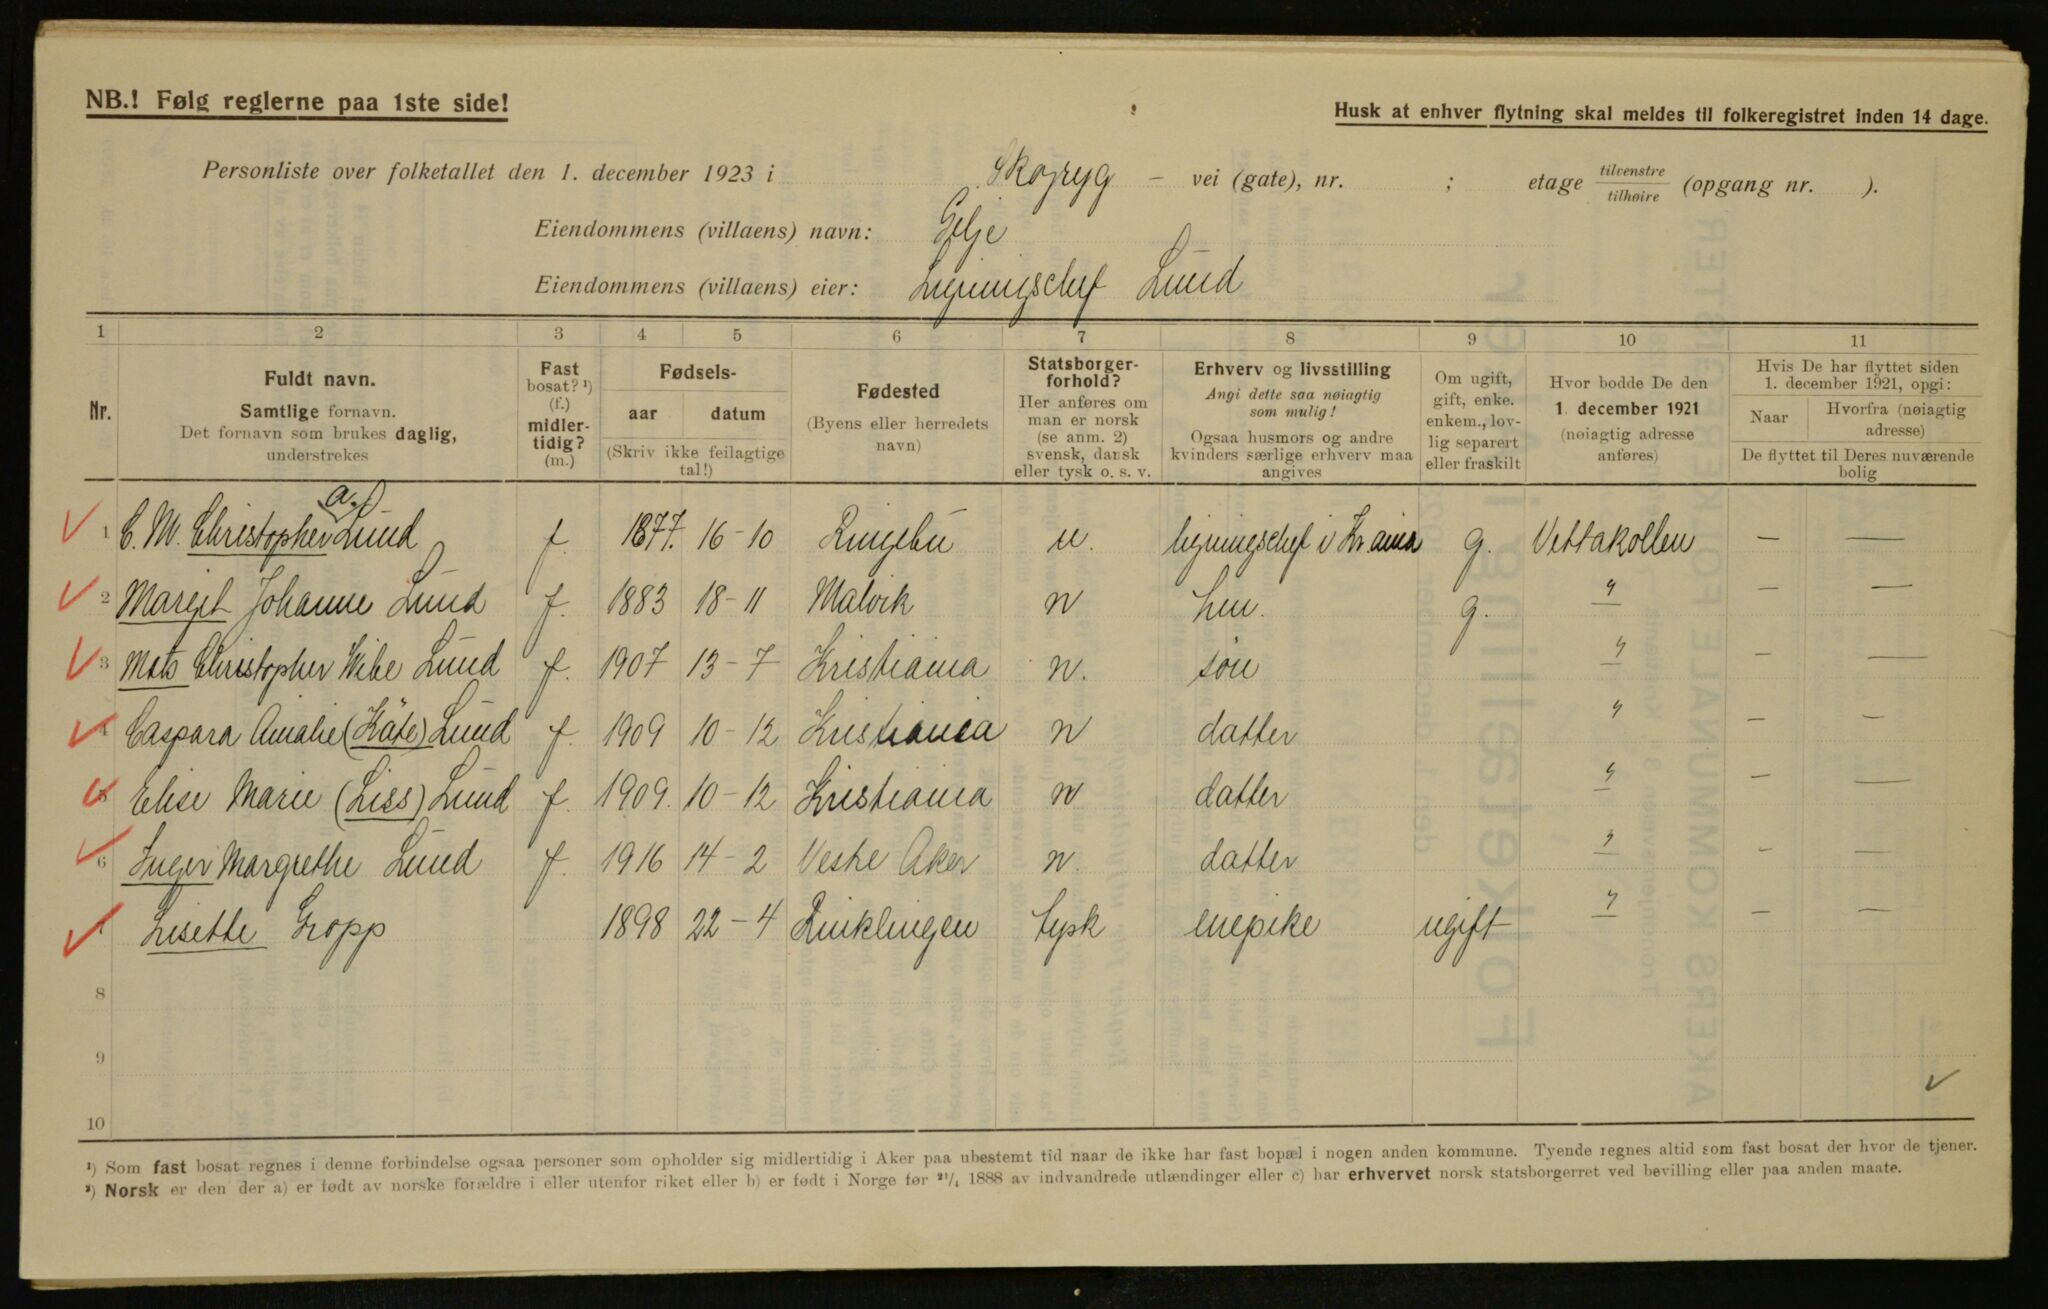 NB.! Følg reglerne paa 1ste side!
Husk at enhver flytning skal meldes til folkeregistret inden 14 dage.
Personliste over folketallet den 1. december 1923 i Skogryg – vei (gate), nr. ; etage tilvenstre / tilhøire (opgang nr. ).
Eiendommens (villaens) navn: Gilje
Eiendommens (villaens) eier: Ligningschef Lund
1 2 3 4 5 6 7 8 9 10 11
Nr.
Fuldt navn.
Samtlige fornavn.
Det fornavn som brukes daglig,
understrekes
Fast
bosat? ¹)
(f.)
midler-
tidig?
(m.)
Fødsels-
aar datum
(Skriv ikke feilagtige
tal!)
Fødested
(Byens eller herredets
navn)
Statsborger-
forhold?
Her anføres om
man er norsk
(se anm. 2)
svensk, dansk
eller tysk o. s. v.
Erhverv og livsstilling
Angi dette saa nøiagtig
som mulig!
Ogsaa husmors og andre
kvinders særlige erhverv maa
angives
Om ugift,
gift, enke.
enkem., lov-
lig separert
eller fraskilt
Hvor bodde De den
1. december 1921
(nøiagtig adresse
anføres)
Hvis De har flyttet siden
1. december 1921, opgi:
Naar Hvorfra (nøiagtig
adresse)
De flyttet til Deres nuværende
bolig
1 C. M. Christopher a. Lund f. 1877. 16-10 Ringebu n. ligningschef i Kr.ania g. Vettakollen — —
2 Margit Johanne Lund f. 1883 18-11 Malvik n hm. g. " — —
3 Mats Christopher Wibe Lund f. 1907 13-7 Kristiania n. søn " — —
4 Caspara Amalie (Käte) Lund f. 1909 10-12 Kristiania n datter " — —
5 Elise Marie (Liss) Lund f. 1909. 10-12 Kristiania n datter " — —
6 Inger Margrethe Lund f. 1916 14-2 Vestre Aker n. datter " — —
Lisette Gropp 1898 22-4 Rinklingen tysk enepike ugift " — —
8
9
10
¹) Som fast bosat regnes i denne forbindelse ogsaa personer som opholder sig midlertidig i Aker paa ubestemt tid naar de ikke har fast bopæl i nogen anden kommune. Tyende regnes altid som fast bosat der hvor de tjener.
²) Norsk er den der a) er født av norske forældre i eller utenfor riket eller b) er født i Norge før ²¹/₄ 1888 av indvandrede utlændinger eller c) har erhvervet norsk statsborgerret ved bevilling eller paa anden maate.